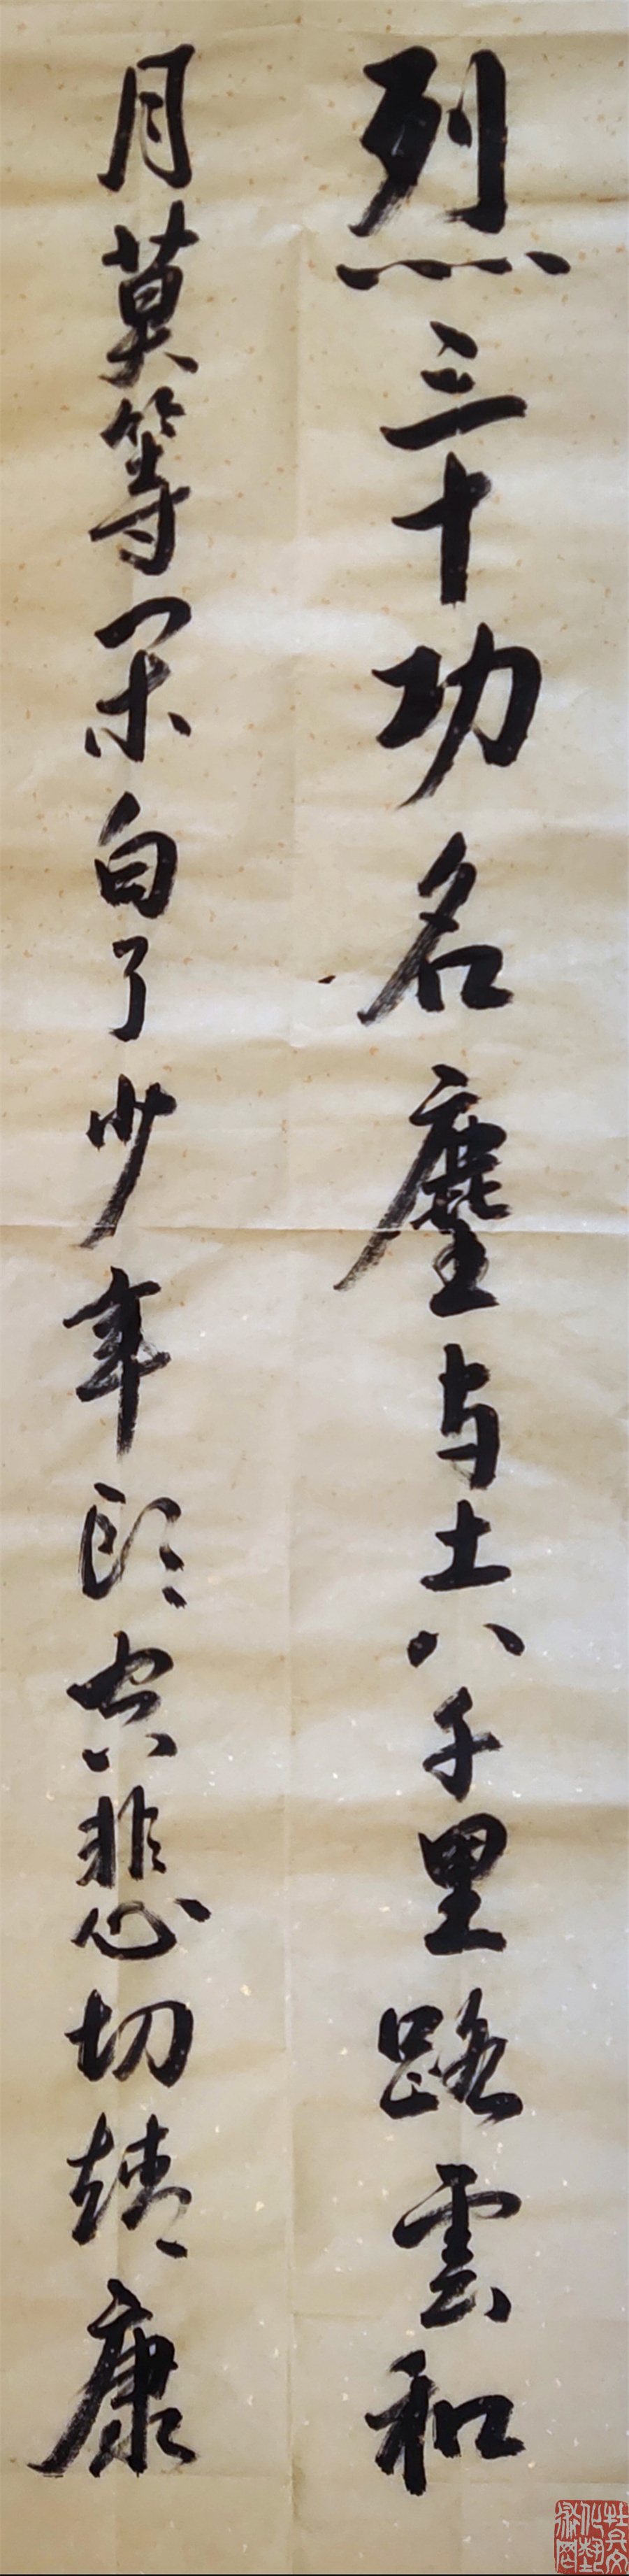 烈三十功名塵与土八千里路雲和
月莫等閑白了少年頭空悲切靖康